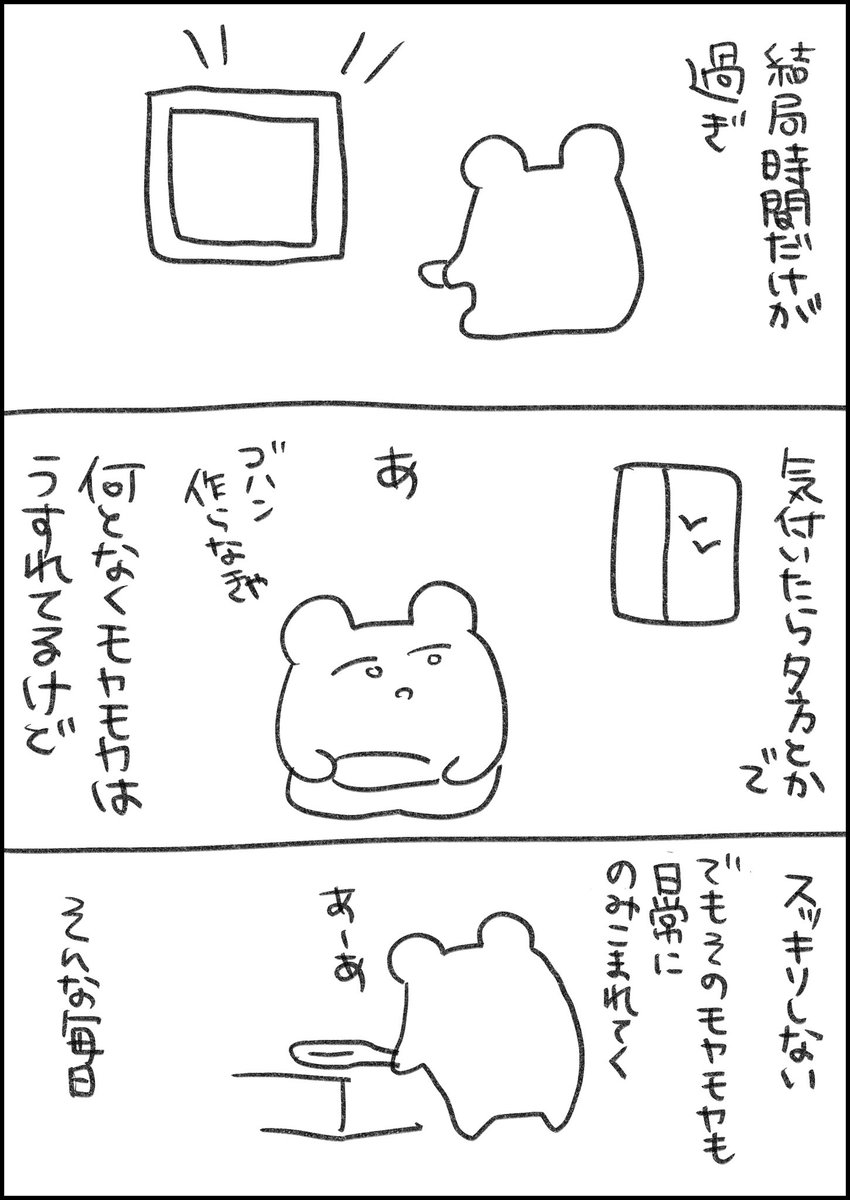 結局時間だけが
過ぎ
気付いたら夕方とか
で
あ
ゴハン
作らなきゃ
何となくモヤモヤは
うすれてるけど
スッキリしない
でもそのモヤモヤも
日常に
のみこまれてく
あーあ
そんな毎日